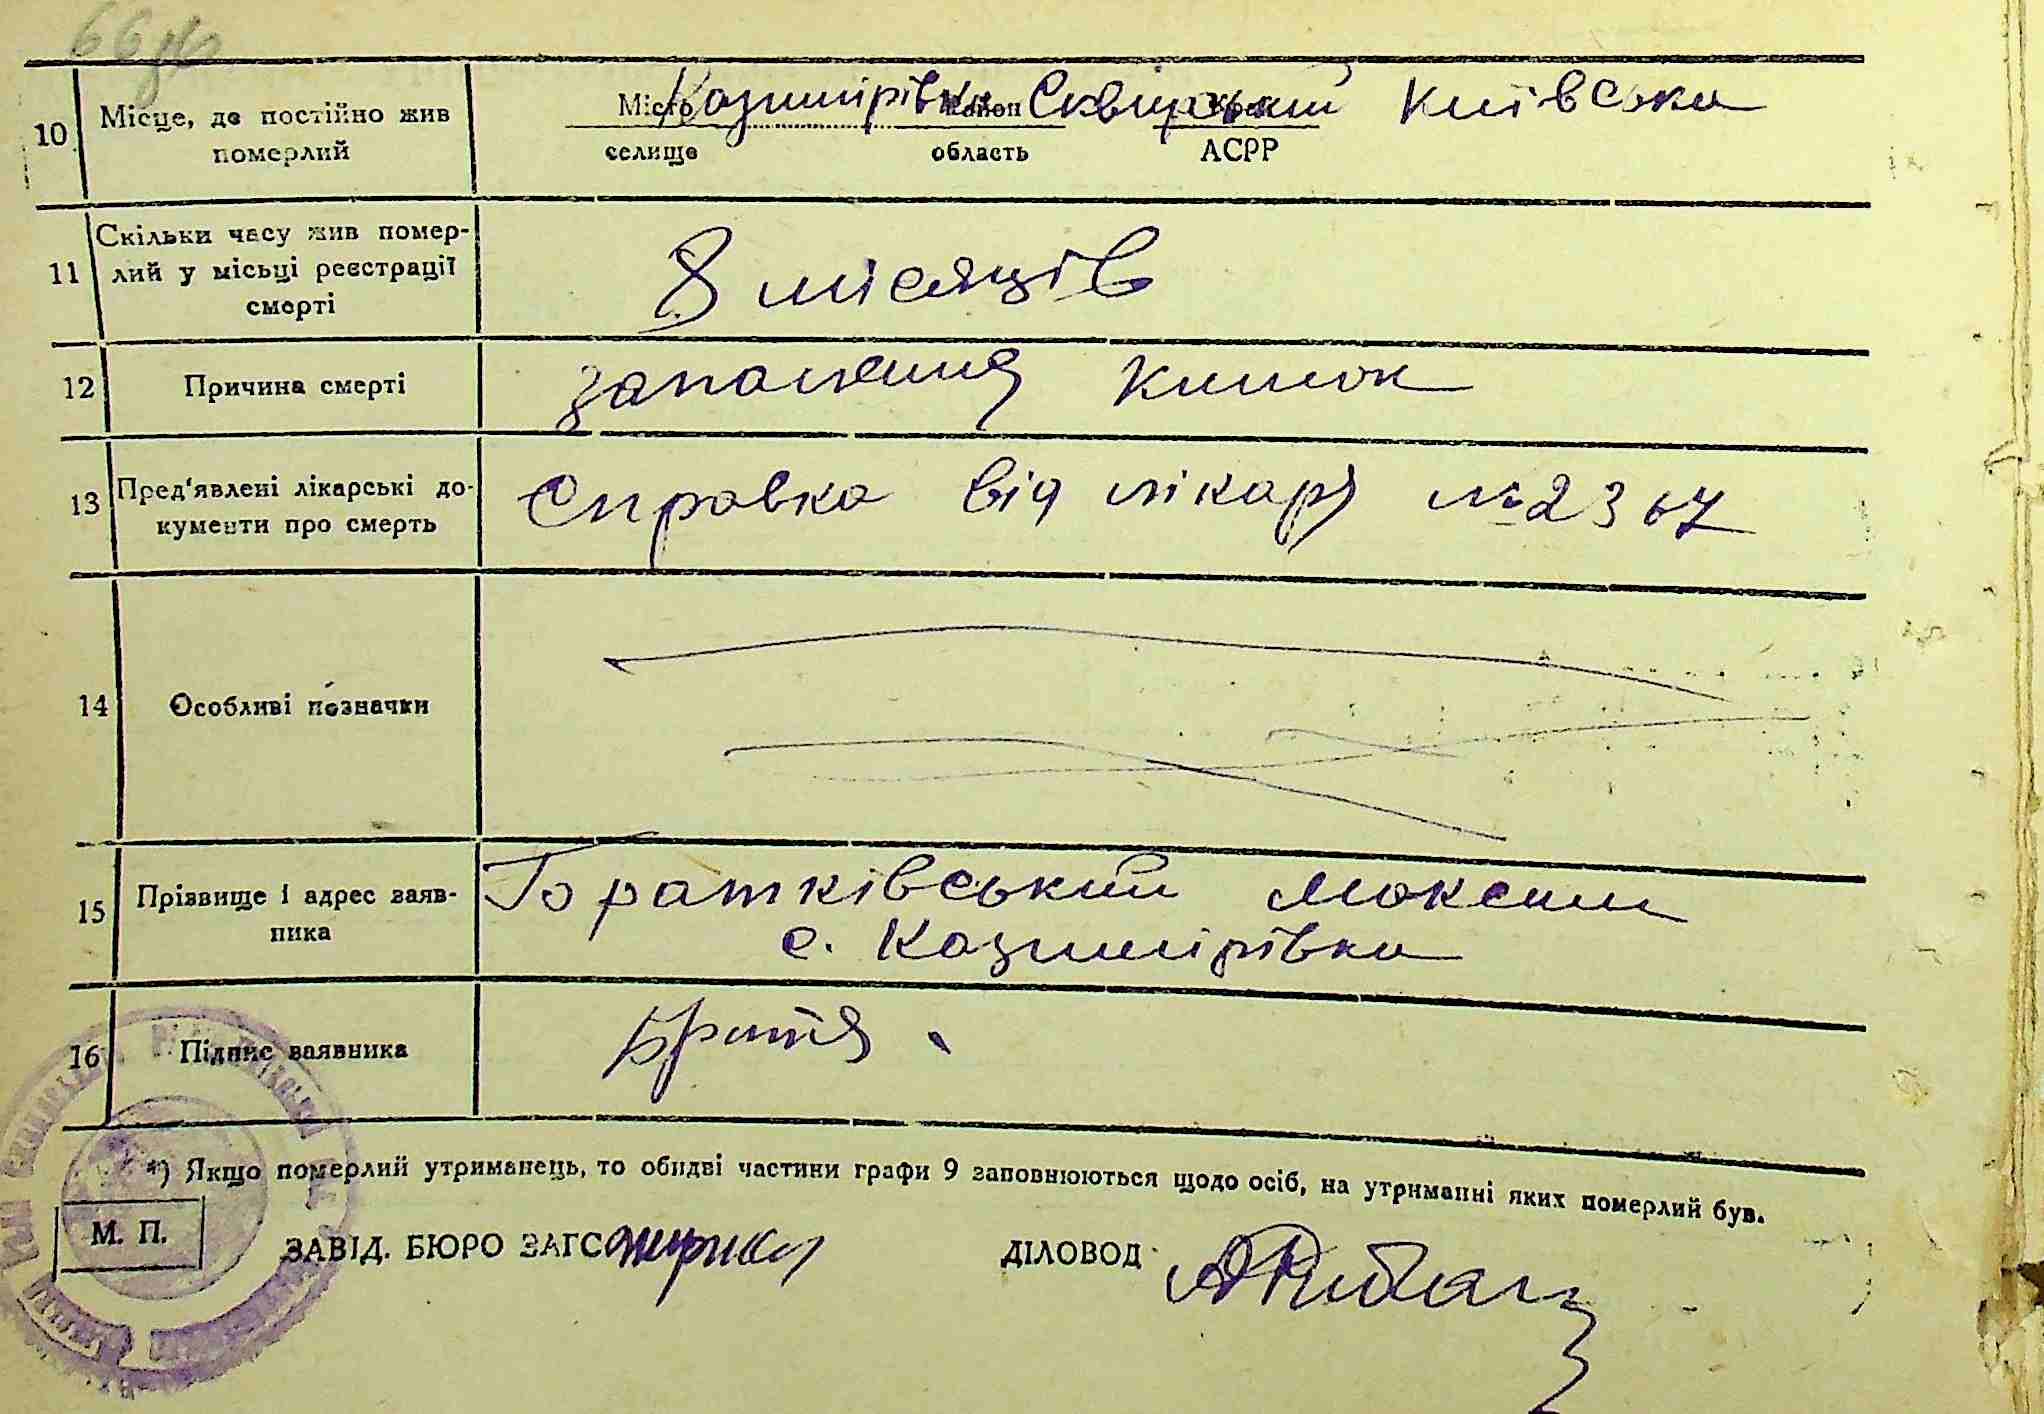 10 Місце, де постійно жив
померлий
Місто Район Край
Казимірівка Сквирський Київська
селище область АСРР
11 Скільки часу жив помер-
лий у місьці реєстрації
смерті
8 місяців
12 Причина смерті
запалення кишок
13 Пред'явлені лікарські до-
кументи про смерть
Справка від лікаря №2367
14 Особливі позначки
15 Прізвище і адрес заяв-
ника
Братківський Максим
с. Казимірівка
16 Підпис заявника
*) Якщо померлий утриманець, то обидві частини графи 9 заповнюються щодо осіб, на утриманні яких померлий був.
М. П.
ЗАВІД. БЮРО ЗАГС
ДІЛОВОД